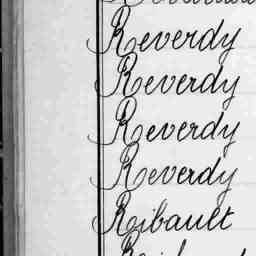 Reverdy
Reverdy
Reverdy
Reverdy
Ribault